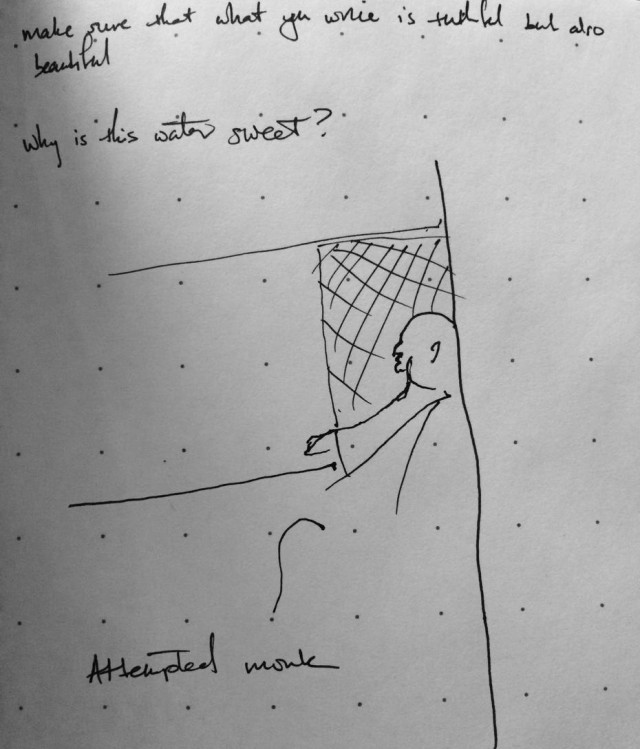 make sure that what you write is truthful but also
beautiful
why is this water sweet?
Attempted monk